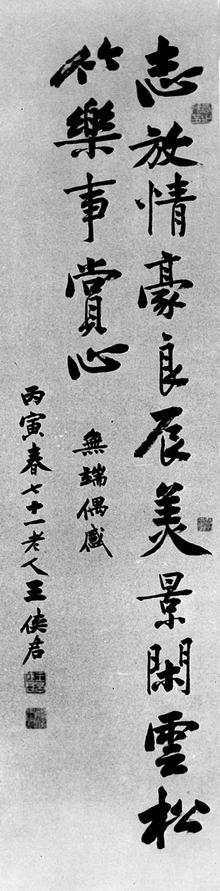 志放情豪良辰美景閑雲松
竹樂事賞心
無端偶感
丙寅春七十一老人王俠君